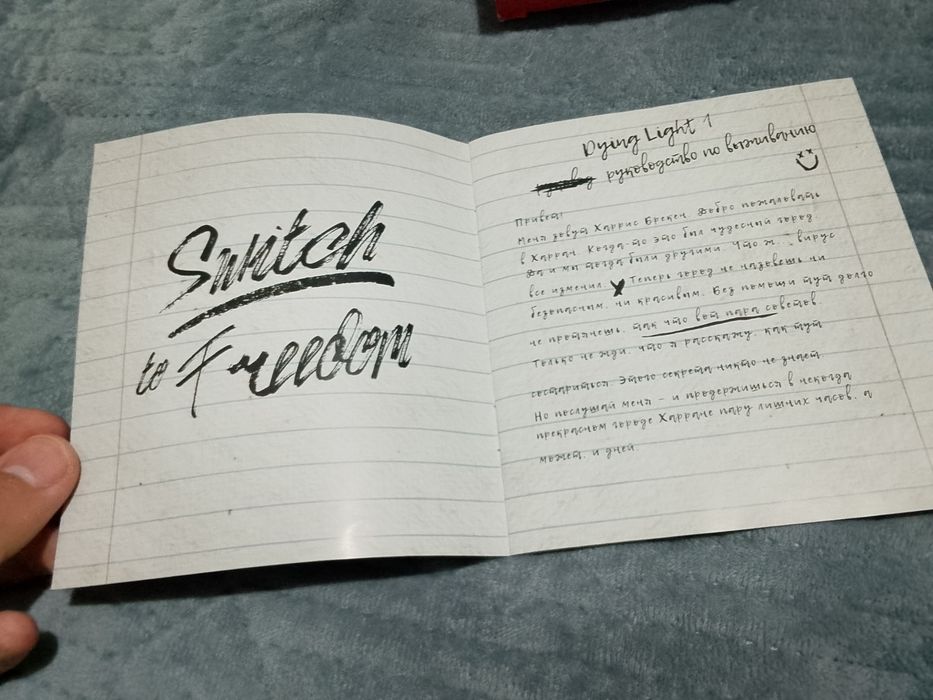 Switch
to Freedom
Dying Light 1
руководство по выживанию
Привет!
Меня зовут Харрис Брекен. Добро пожаловать
в Харран. Когда-то это был чудесный город.
Да и мы тогда были другими. Что ж... вирус
все изменил. Теперь город не назовешь ни
безопасным, ни красивым. Без помощи тут долго
не протянешь, так что вот пара советов.
Только не жди, что я расскажу, как тут
состариться. Этого секрета никто не знает.
Но послушай меня – и продержишься в некогда
прекрасном городе Харране пару лишних часов, а
может, и дней.